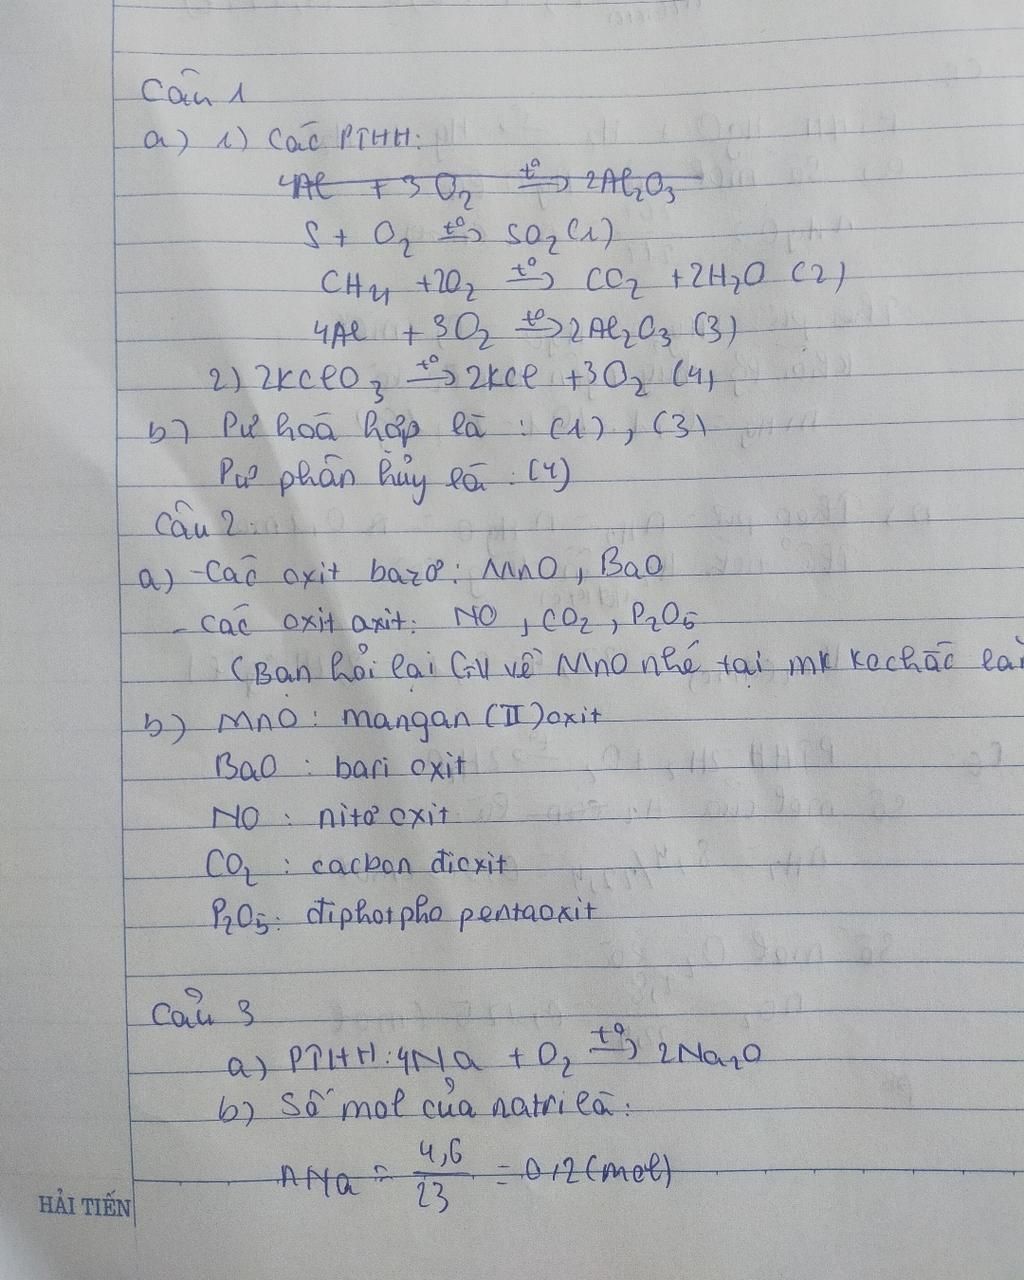 Câu 1
a) 1) Các PTHH:
4Al + 3O₂ t°→ 2Al₂O₃
S + O₂ t°→ SO₂ (1)
CH₄ + 2O₂ t°→ CO₂ + 2H₂O (2)
4Al + 3O₂ t°→ 2Al₂O₃ (3)
2) 2KClO₃ t°→ 2KCl + 3O₂ (4)
b) Pư hoá hợp là : (1), (3)
Pư phân hủy là : (4)
Câu 2:
a) - Các oxit bazơ: MnO, BaO
- Các oxit axit: NO, CO₂, P₂O₅
(Bạn hỏi lại GV về MnO nhé tại mk ko chắc lắm
b) MnO : mangan (II) oxit
BaO : bari oxit
NO : nitơ oxit
CO₂ : cacbon đioxit
P₂O₅: điphotpho pentaoxit
Câu 3
a) PTHH: 4Na + O₂ t°→ 2Na₂O
b) Số mol của natri là:
nNa = 4,6/23 = 0,2 (mol)
HẢI TIẾN